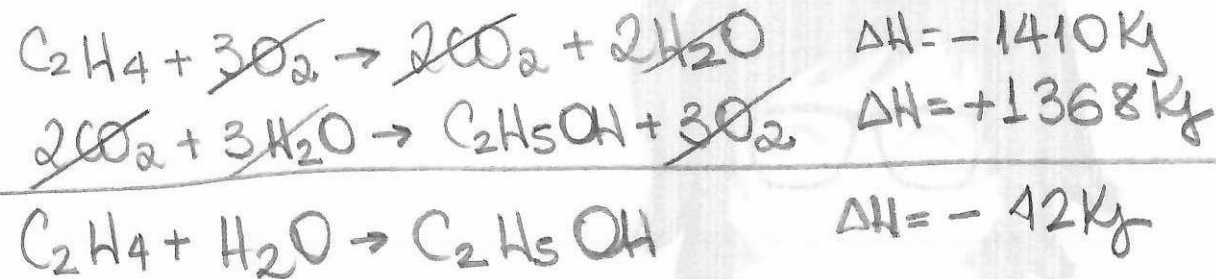 C₂H₄ + 3O₂ → 2CO₂ + 2H₂O ΔH = - 1410 Kj
2CO₂ + 3H₂O → C₂H₅OH + 3O₂ ΔH = +1368 Kj
C₂H₄ + H₂O → C₂H₅OH ΔH = - 42 Kj